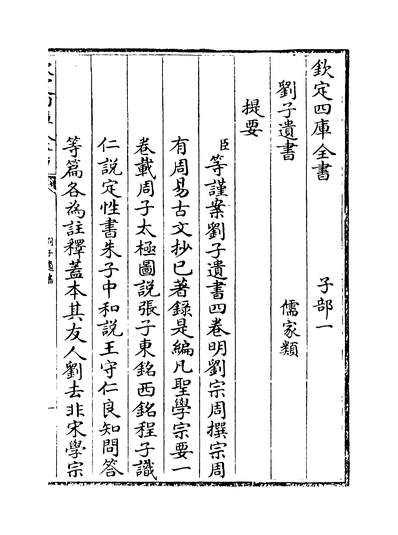 欽定四庫全書
子部一
劉子遺書
儒家類
提要
臣等謹案劉子遺書四卷明劉宗周撰宗周
有周易古文抄已著錄是編凡聖學宗要一
卷載周子太極圖説張子東銘西銘程子識
仁説定性書朱子中和説王守仁良知問答
等篇各為註釋蓋本其友人劉去非宋學宗